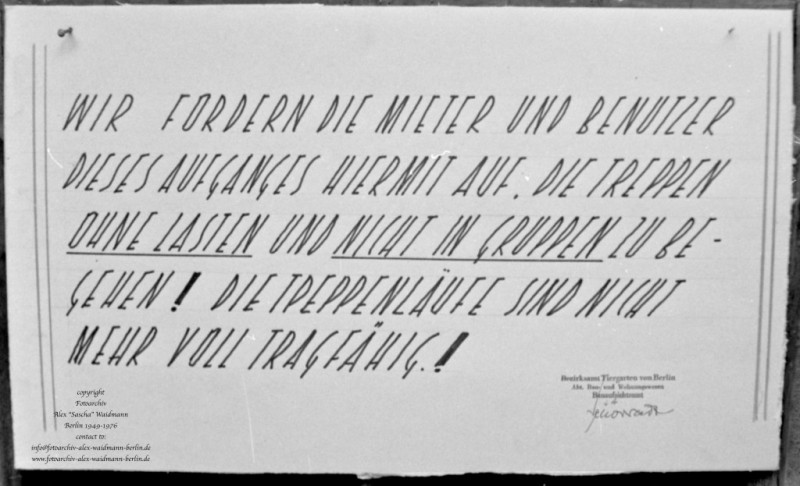 WIR FORDERN DIE MIETER UND BENUTZER
DIESES AUFGANGES HIERMIT AUF, DIE TREPPEN
OHNE LASTEN UND NICHT IN GRUPPEN ZU BE-
GEHEN! DIE TREPPENLÄUFE SIND NICHT
MEHR VOLL TRAGFÄHIG.!
Bezirksamt Tiergarten von Berlin
Abt. Bau- und Wohnungswesen
copyright
Fotoarchiv
Alex "Sascha" Waidmann
Berlin 1949-1976
contact to:
info@fotoarchiv-alex-waidmann-berlin.de
www.fotoarchiv-alex-waidmann-berlin.de